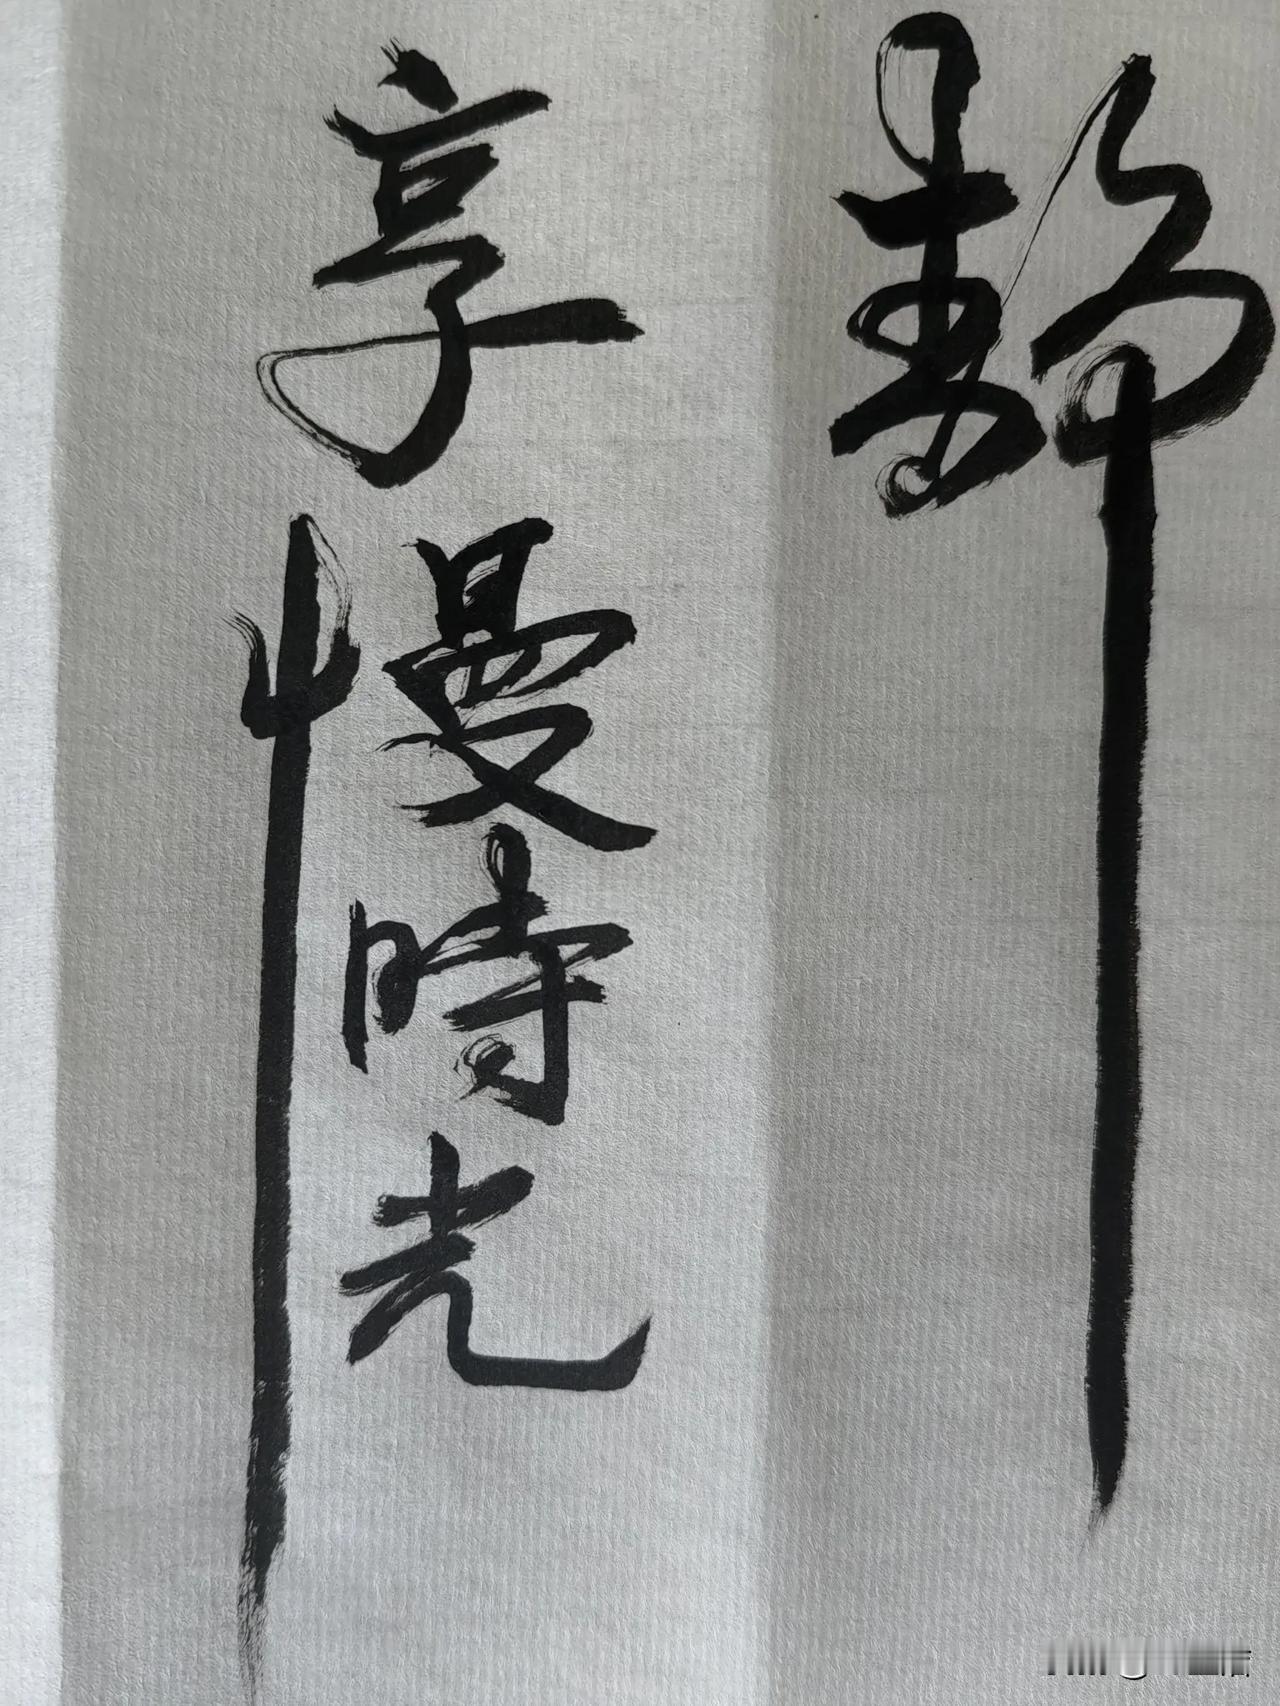 靜
享慢時光